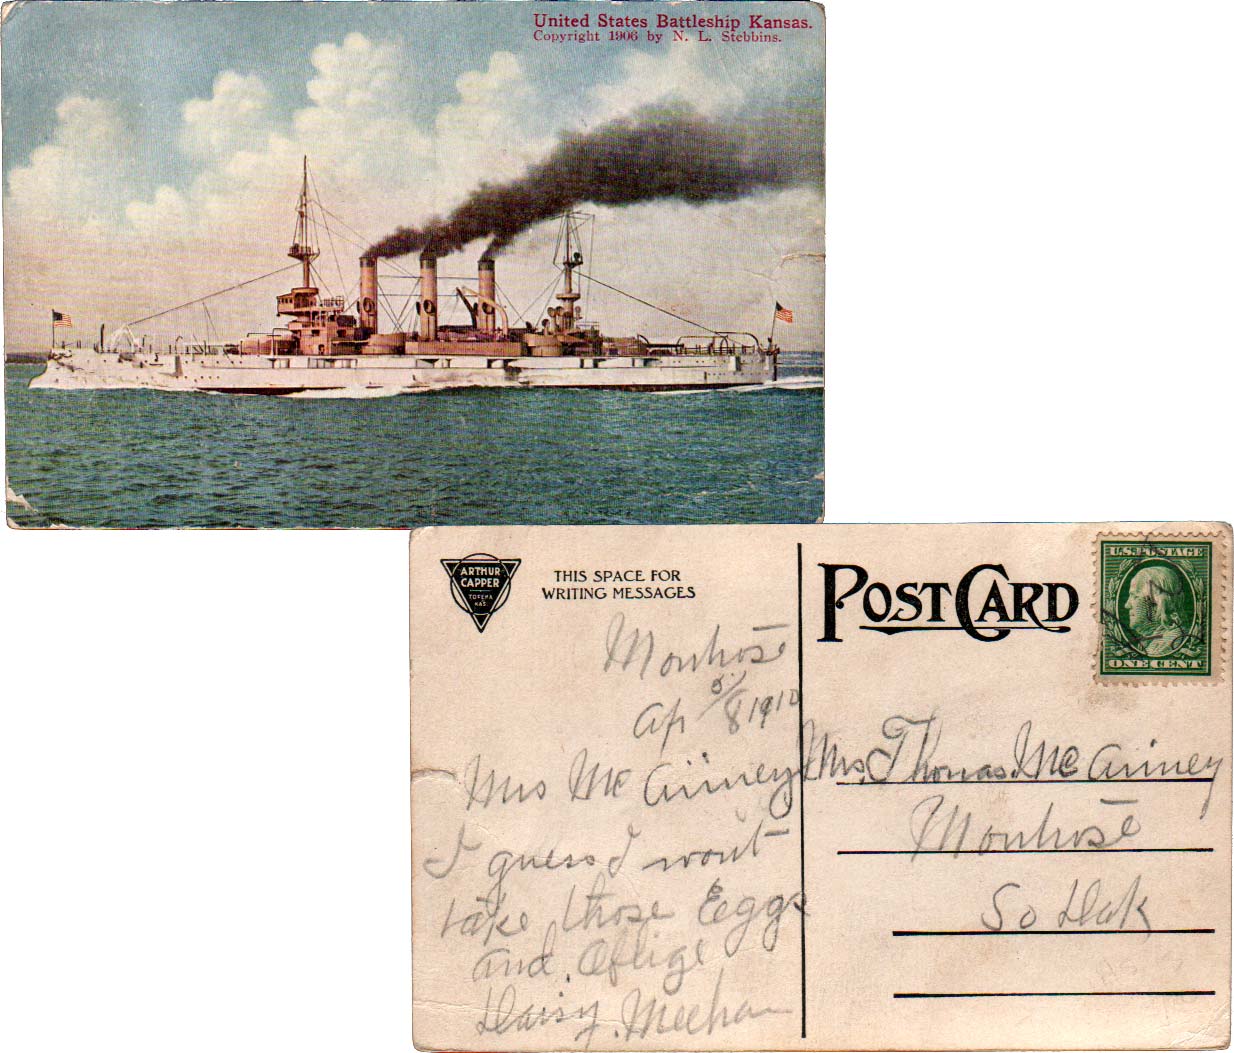 United States Battleship Kansas.
Copyright 1906 by N. L. Stebbins.
ARTHUR
CAPPER
TOPEKA
KAS.
THIS SPACE FOR
WRITING MESSAGES
POST CARD
U.S. POSTAGE
ONE CENT
Montrose
Ap 8 1910
Mrs Mc
I guess I wont
take those Eggs
and Oblige
Daisy Meehan
Mrs. Thomas Mc
Montrose
So Dak